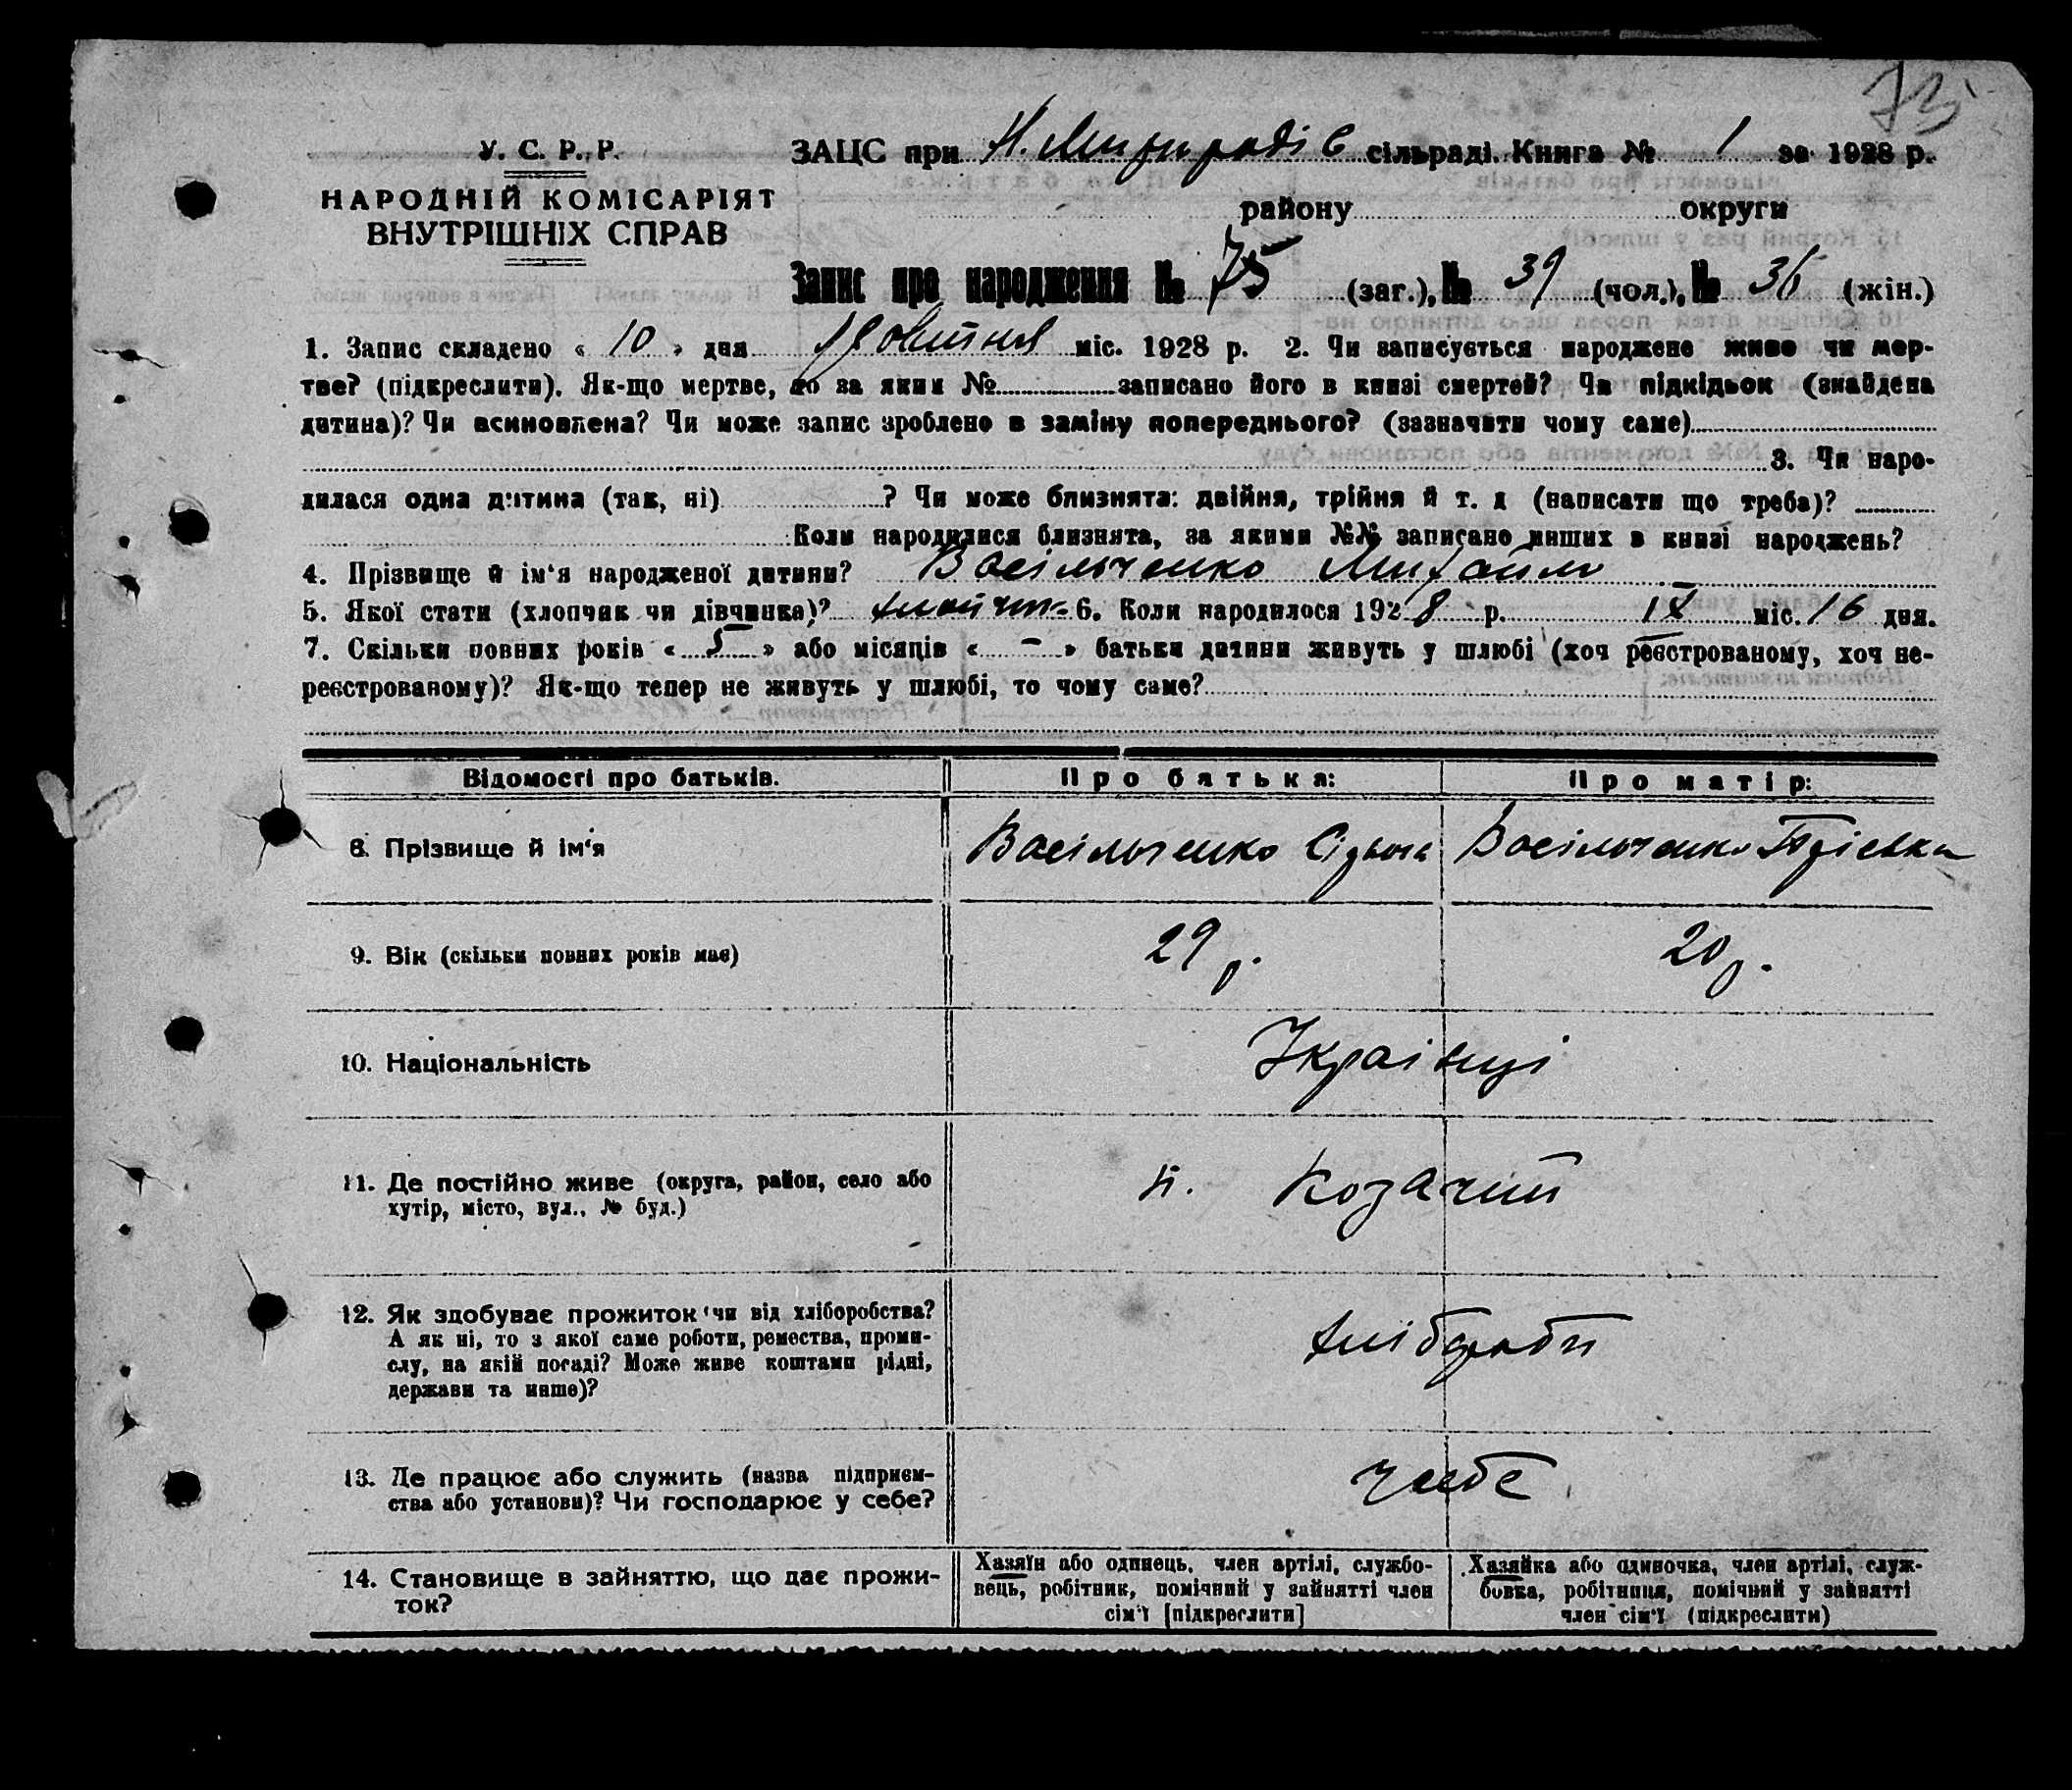 75
У. С. Р. Р.
НАРОДНІЙ КОМІСАРІЯТ
ВНУТРІШНІХ СПРАВ
ЗАЦС при Н. сільраді. Книга № 1 за 1928 р.
району округи
Запис про народження № 75 (заг.), № 39 (чол.), № 36 (жін.)
1. Запис складено « 10 » дня Жовтня міс. 1928 р. 2. Чи записується народжене живе чи мер-
тве? (підкреслити). Як-що мертве, то за яким № записано його в книзі смертей? Чи підкідьок (знайдена
дитина)? Чи всиновлена? Чи може запис зроблено в заміну попереднього? (зазначити чому саме)
3. Чи наро-
дилася одна дитина (так, ні) ? Чи може близнята: двійня, трійня й т. д (написати що треба)?
Коли народилися близнята, за якими №№ записано инших в книзі народжень?
4. Прізвище й ім‘я народженої дитини? Васільченко Михайло
5. Якої стати (хлопчик чи дівчинка)? хлопчик 6. Коли народилося 1928 р. IX міс. 16 дня.
7. Скільки повних років « 5 » або місяців « - » батьки дитини живуть у шлюбі (хоч реєстрованому, хоч не-
реєстрованому)? Як-що тепер не живуть у шлюбі, то чому саме?
Відомості про батьків. Про батька: Про матір:
8. Прізвище й ім‘я Васільченко Васільченко
9. Вік (скільки повних років має) 29 р. 20 р.
10. Національність Українці
11. Де постійно живе (округа, район, село або
хутір, місто, вул., № буд.) Козачий
12. Як здобуває прожиток (чи від хліборобства?
А як ні, то з якої саме роботи, ремества, проми-
слу, на якій посаді? Може живе коштами рідні,
держави та инше)? хлібороби
13. Де працює або служить (назва підприєм-
ства або установи)? Чи господарює у себе? у себе
14. Становище в зайняттю, що дає прожи-
ток?
Хазяїн або одинець, член артілі, службо-
вець, робітник, помічний у зайнятті член
сім‘ї [підкреслити]
Хазяйка або одиночка, член артілі, служ-
бовка, робітниця, помічний у зайнятті
член сім‘ї (підкреслити)